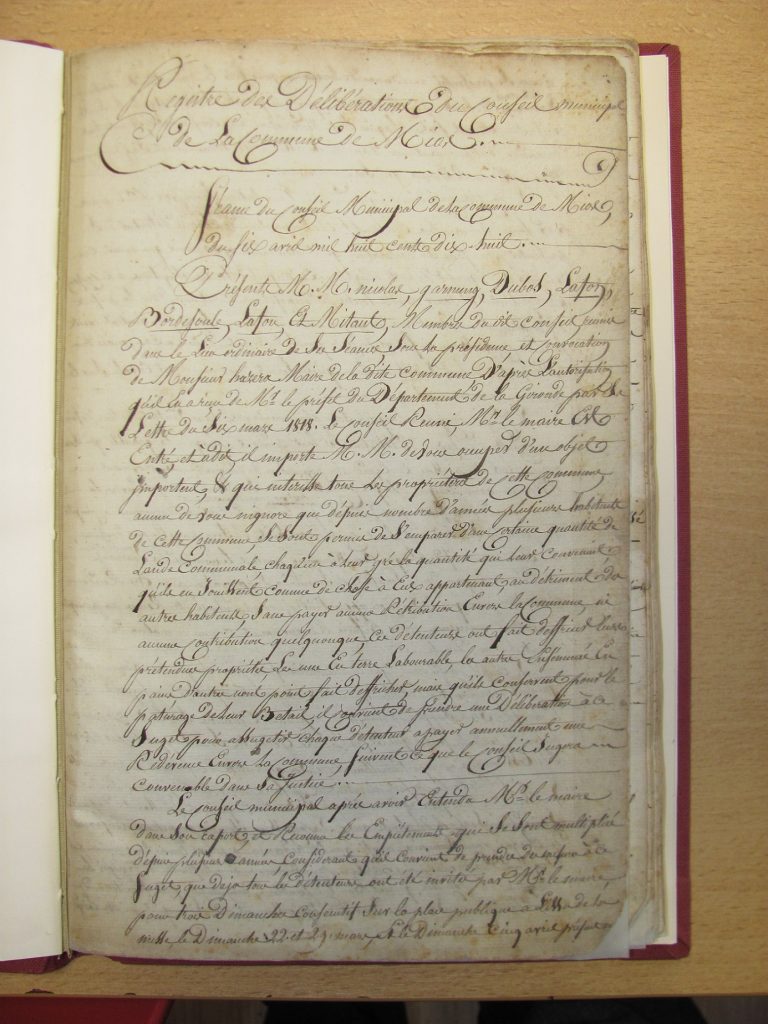 Registre des Délibérations du Conseil municipal
de La Commune de Mios.
Séance du Conseil Municipal de la Commune de Mios,
du six avril mil huit cents dix-huit.
Présents M. M. nicolas, garnung, Dubos, Lafon,
Bordesoule, Lafon, Et Mitaut, Membres du dit Conseil réunis
dans le Lieu ordinaire de Ses Séances, Sous la présidence et convocation
de Monsieur hazera Maire de la dite commune D'après L'autorisation
qu'il En a reçue de Mr. le préfet du Département de la Gironde par Sa
Lettre du Six mars 1818. Le Conseil Reuni, Mr. le maire Est
Entré, et a dit, il importe M. M. de vous occuper d'un objet
important, & qui interesse tous les propriétaires de cette commune,
aucun de vous n'ignore que dépuis nombre d'années plusieurs habitants
de cette Commune, Se Sont permis de S'emparer d'une certaine quantité de
Lande Communale chaqu'un à Leur gré la quantité qui Leur Convenait
qu'ils en Jouissent comme de chose à Eux appartenant, au détriment des
autres habitants, Sans payer aucune Rétribution Envers la Commune, ni
aucune Contribution quelquonque, ces détenteurs ont fait déffricher Leurs
prétendues propriétés Les uns En terre Labourable, les autres Ensemencés En
pains d'autres n'ont point fait déffricher mais qu'ils Conservent pour le
paturage de leur Betail, il convient de prendre une Délibération à ce
Sujet pour assugetir chaque détenteur a payer annuellement une
Rédévence Envers La Commune, Suivant ce que le Conseil Jugera
Convenable dans Sa Justice.
Le Conseil municipal après avoir Entendu Mr. le maire
dans Son raport, et Reconnu les Empiétements qui Se Sont multipliés
dépuis plusieurs années, Considérant qu'il Convient de prendre des mesures à ce
Sujet, que deja tous les détenteurs ont été invités par Mr. le maire,
pour trois Dimanches Consécutifs Sur la place publique a L'issue de la
messe le Dimanche 22 et 29 mars, et le Dimanche Cinq avril présent